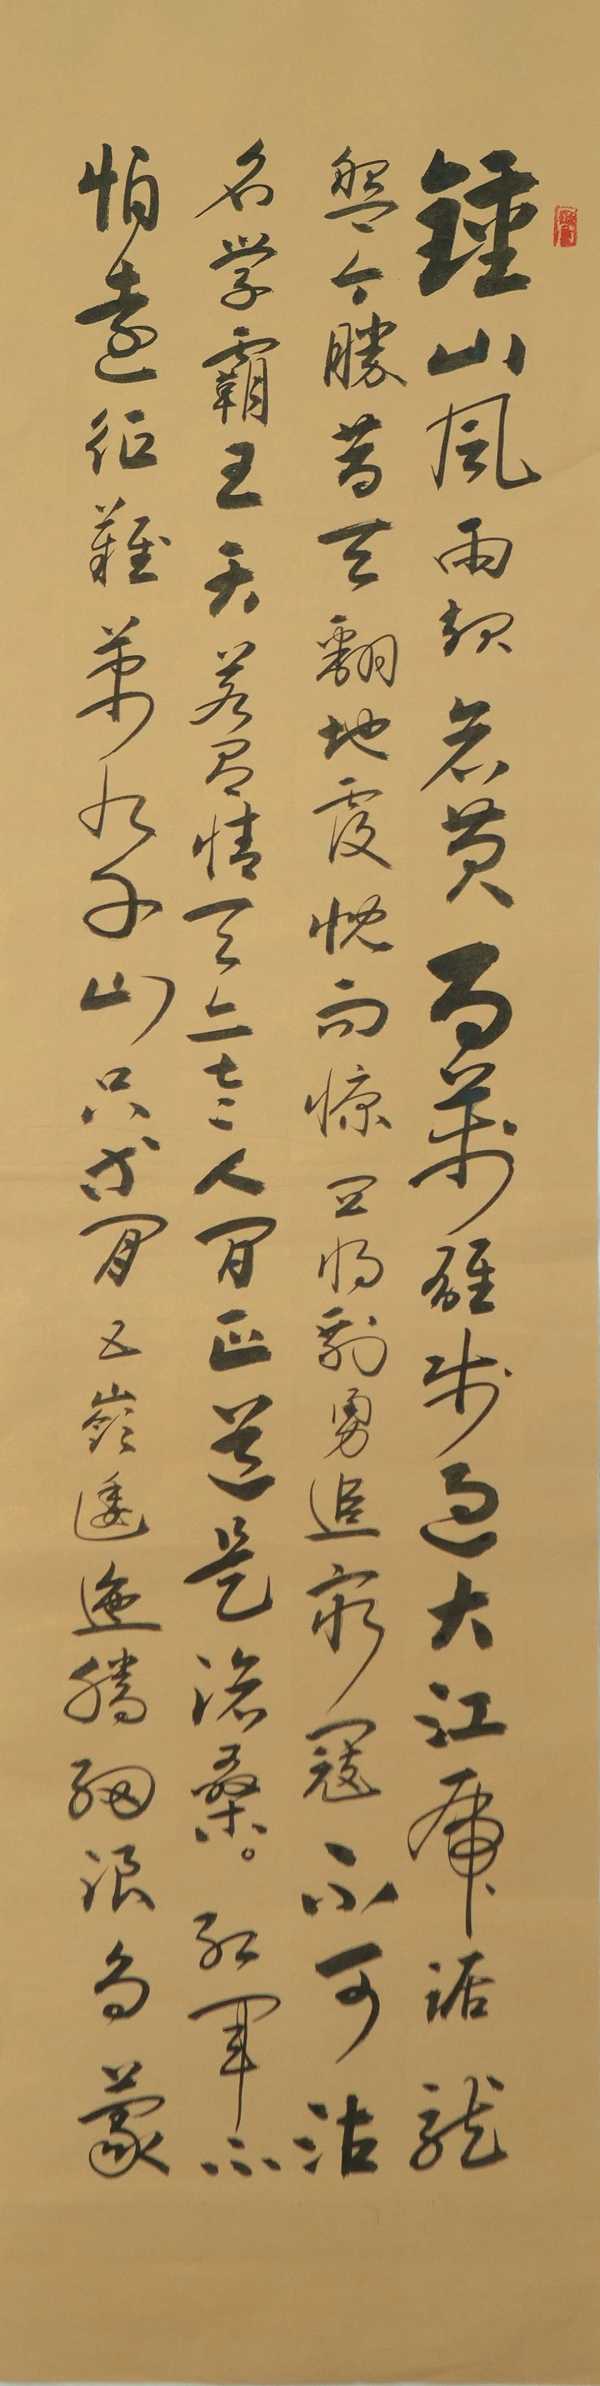 鍾山風雨起蒼黄百萬雄師過大江虎踞龍
盤今勝昔天翻地覆慨而慷宜将剩勇追窮寇不可沽
名学霸王天若有情天亦老人间正道是滄桑。紅軍不
怕遠征難萬水千山只等閒五嶺逶迤騰細浪烏蒙